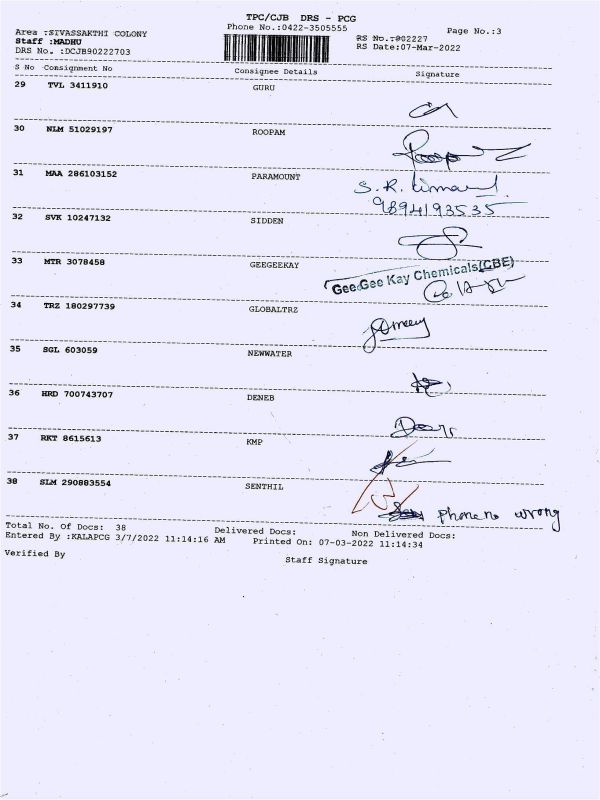 TPC/CJB DRS - PCG
Phone No.:0422-3505555
Page No.:3
Area :SIVASSAKTHI COLONY
Staff :MADHU
DRS No. :DCJB90222703
RS No.:902227
RS Date:07-Mar-2022
S No Consignment No Consignee Details Signature
29 TVL 3411910 GURU
30 NLM 51029197 ROOPAM
31 MAA 286103152 PARAMOUNT
S.R.
9894193535
32 SVK 10247132 SIDDEN
33 MTR 3078458 GEEGEEKAY
Gee Gee Kay Chemicals(CBE)
34 TRZ 180297739 GLOBALTRZ
35 SGL 603059 NEWWATER
36 HRD 700743707 DENEB
37 RKT 8615613 KMP
38 SLM 290883554 SENTHIL
phone no wrong
Total No. Of Docs: 38 Delivered Docs: Non Delivered Docs:
Entered By :KALAPCG 3/7/2022 11:14:16 AM Printed On: 07-03-2022 11:14:34
Verified By Staff Signature